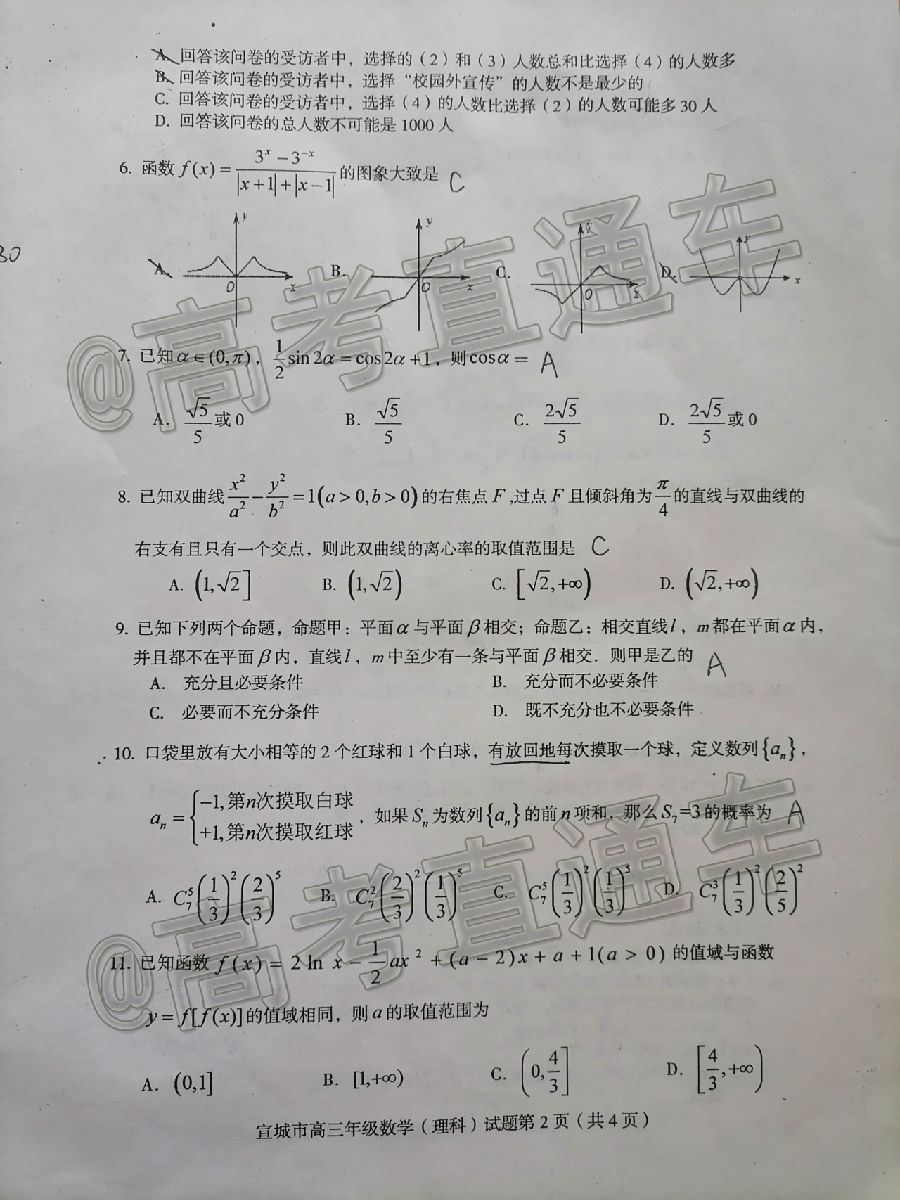 A. 回答该问卷的受访者中，选择的（2）和（3）人数总和比选择（4）的人数多
B. 回答该问卷的受访者中，选择“校园外宣传”的人数不是最少的
C. 回答该问卷的受访者中，选择（4）的人数比选择（2）的人数可能多 30 人
D. 回答该问卷的总人数不可能是 1000 人
6. 函数 f(x) = (3^x − 3^{-x}) / (|x+1|+|x−1|) 的图象大致是 C
80
A. y O x B. y O x C. y O x D. y x
7. 已知 α∈(0,π)，1/2 sin2α = cos2α+1，则 cosα = A
A. √5/5 或 0 B. √5/5 C. 2√5/5 D. 2√5/5 或 0
8. 已知双曲线 x²/a² − y²/b² = 1(a>0,b>0) 的右焦点 F ,过点 F 且倾斜角为 π/4 的直线与双曲线的
右支有且只有一个交点，则此双曲线的离心率的取值范围是 C
A. (1,√2] B. (1,√2) C. [√2,+∞) D. (√2,+∞)
9. 已知下列两个命题，命题甲：平面 α 与平面 β 相交；命题乙：相交直线 l，m 都在平面 α 内，
并且都不在平面 β 内，直线 l，m 中至少有一条与平面 β 相交．则甲是乙的 A
A. 充分且必要条件 B. 充分而不必要条件
C. 必要而不充分条件 D. 既不充分也不必要条件
10. 口袋里放有大小相等的 2 个红球和 1 个白球，有放回地每次摸取一个球，定义数列{a_n}，
a_n = { −1,第n次摸取白球
+1,第n次摸取红球 ，如果 S_n 为数列{a_n}的前 n 项和，那么 S_7=3 的概率为 A
A. C_7^5 (1/3)^2 (2/3)^5 B. C_7^2 (2/3)^2 (1/3)^5 C. C_7^5 (1/3)^2 (1/3)^5 D. C_7^3 (1/3)^2 (2/5)^2
11. 已知函数 f(x) = 2ln x − 1/2 ax² + (a−2)x + a + 1(a>0) 的值域与函数
y = f[f(x)] 的值域相同，则 a 的取值范围为
A. (0,1] B. [1,+∞) C. (0,4/3] D. [4/3,+∞)
宣城市高三年级数学（理科）试题第 2 页（共 4 页）
@高考直通车
@高考直通车